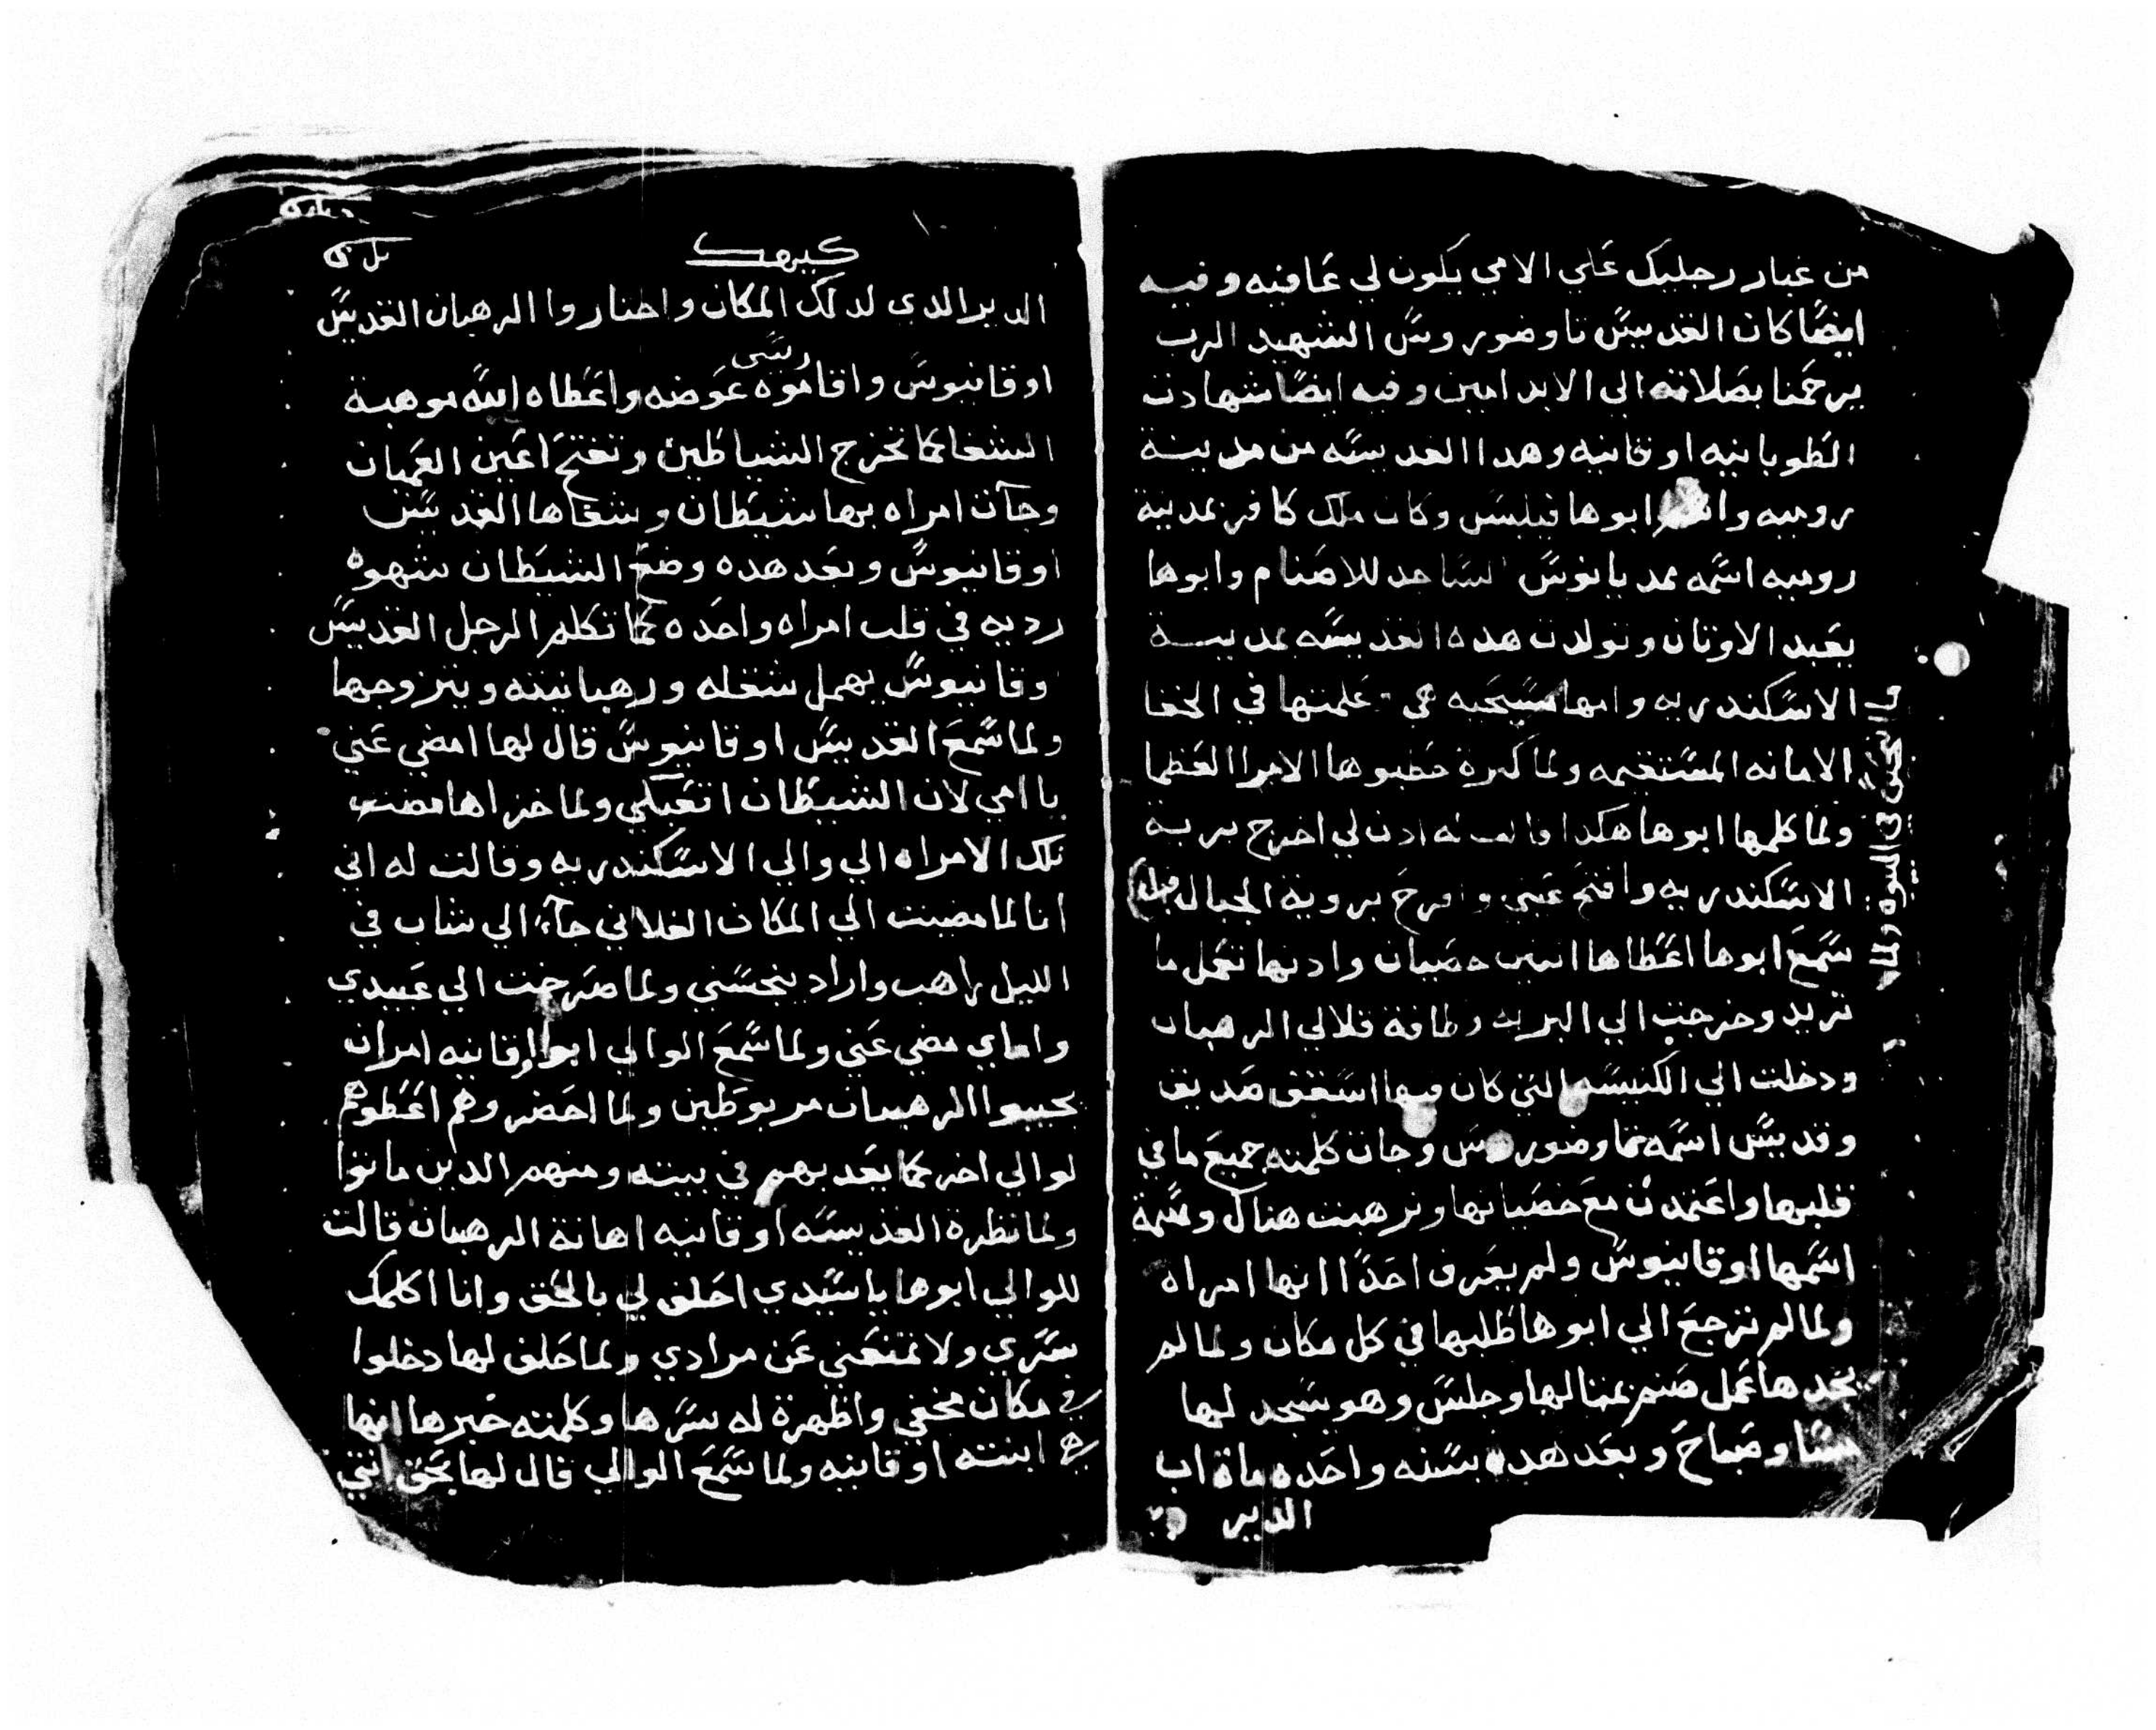 من غبار رجليك علي الامي يكون لي عافيه وفيه
ايضا كان القديس تاوضوروس الشهيد الرب
يرحمنا بصلاته الي الابد امين وفيه ايضا شهادت
الطوبانيه اوقانيه وهدا القديسه من مدينة
روميه ابوها فيلبس وكان ملك كافر بمدينة
روميه اسمه الساجد للاصنام وابوها
يعبد الاوتان وتولدت هده القديسه بمدينة
الاسكندريه وامها مسيحيه هي علمتها في الخفا
الامانه المستقيمه ولما كبرة خطبوها الامرا العظما
ولما كلمها ابوها هكدا قالت له ادن لي اخرج برية
الاسكندريه وافتح عيني وافرح بروية الجبال
سمع ابوها اعطاها اتنين خصيان وادنها تعمل ما
تريد وخرجت الي البريه وطافة قلالي الرهبان
ودخلت الي الكنيسه التي كان فيها اسقف صديق
وقديس اسمه تاوضوروس وجات كلمته جميع ما في
قلبها واعتمدت مع خصيانها وترهبت هناك وسمة
اسمها اوقانيوس ولم يعرف احدا انها امراه
ولما لم ترجع الي ابوها طلبها في كل مكان ولما لم
يجدها عمل صنم تمتالها وجلس وهو يسجد لها
مسا وصباح وبعد هده بسنه واحده ماة اب
الدير
كيهك
الدير الدي لدلك المكان واختاروا الرهبان القديس
ريس
اوقانيوس واقاموه عوضه واعطاه الله موهبة
الشفا كما تخرج الشياطين وتفتح اعين العميان
وجآت امراه بها شيطان وشفاها القديس
اوقانيوس وبعد هده وضع الشيطان شهوه
رديه في قلب امراه واحده كما تكلم الرجل القديس
وقانيوس يهمل شغله ورهبانيته ويتزوجها
ولما سمع القديس اوقانيوس قال لها امضي عني
يا امي لان الشيطان اتعبكي ولما خزاها مضت
تلك الامراه الي والي الاسكندريه وقالت له اني
انا لما مضيت الي المكان الفلاني جآء الي شاب في
الليل راهب واراد ينجسني ولما صرخت الي عبيدي
واماي مضي عني ولما سمع الوالي ابوا اوقانيه امر ان
يجيبوا الرهبان مربوطين ولما احضروهم اعطوهم
لوالي اخر كما يعدبهم في بيته ومنهم الدين ماتوا
ولما نظرة القديسه اوقانيه اهانة الرهبان قالت
للوالي ابوها يا سيدي احلف لي بالحق وانا اكلمك
سري ولا تمنعني عن مرادي ولما حلف لها دخلوا
في مكان مخفي واظهرة له سرها وكلمته خبرها انها
هي ابنته اوقانيه ولما سمع الوالي قال لها بحق انتي